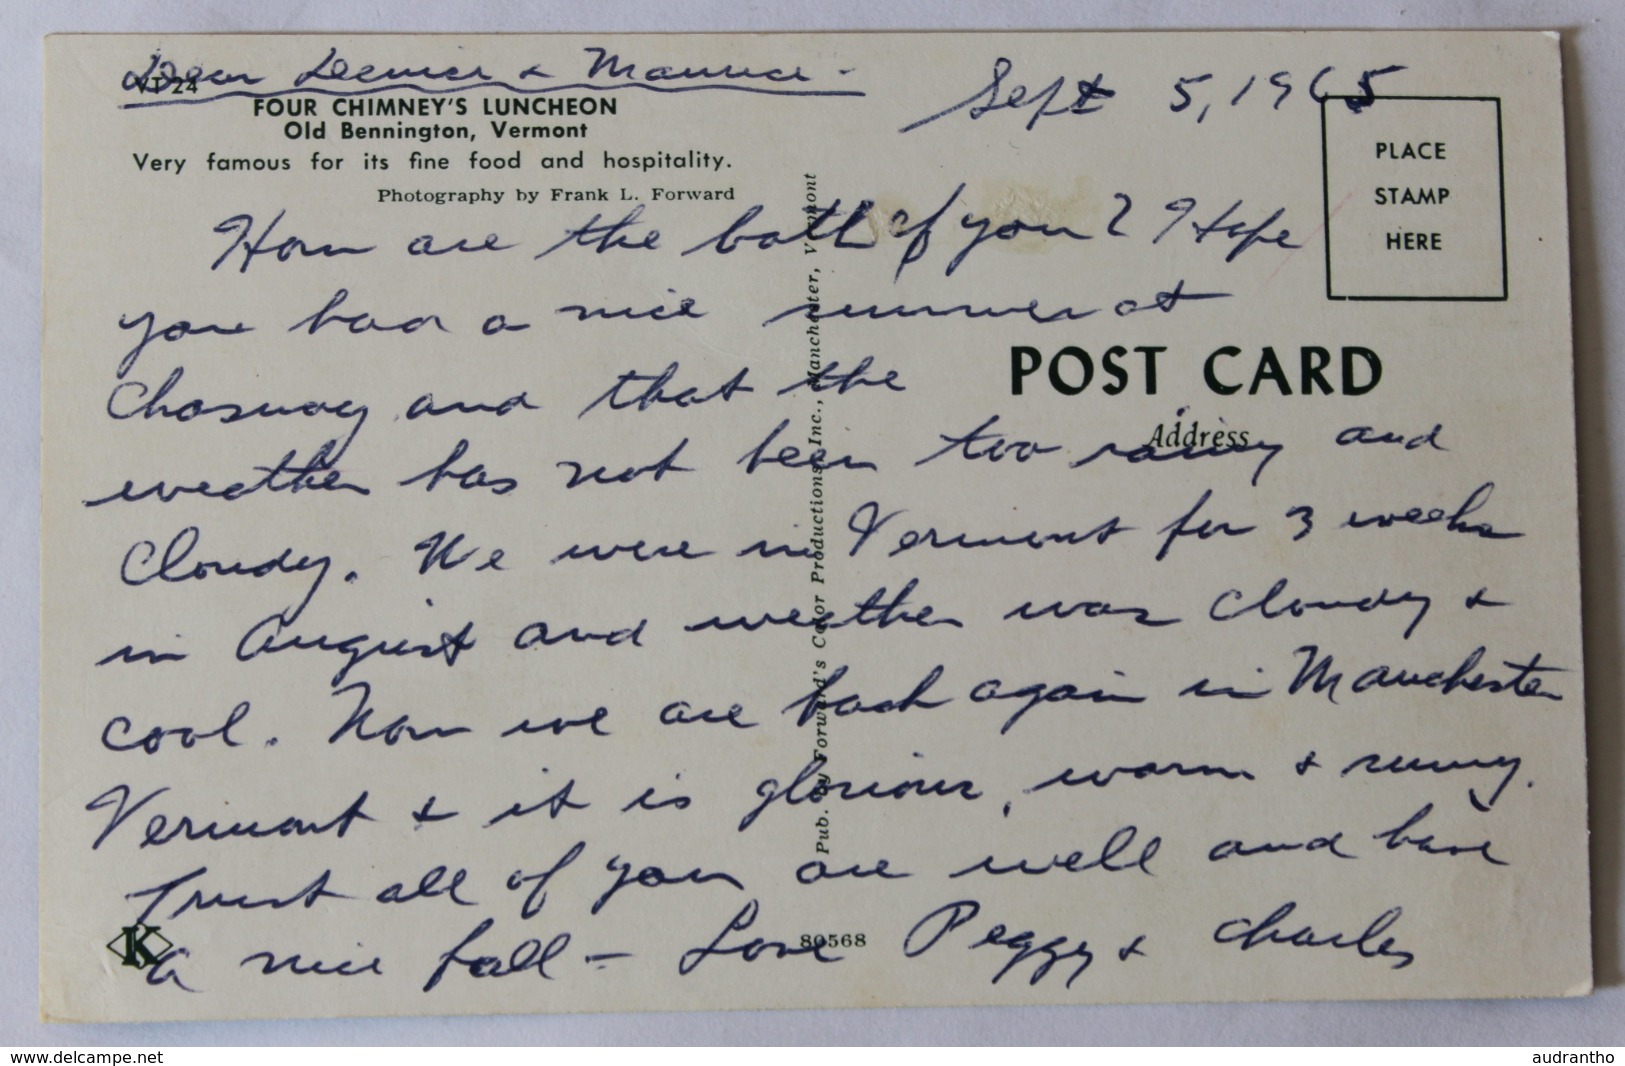 Dear & Maurice -
Sept 5, 1965
VT 24
FOUR CHIMNEY'S LUNCHEON
Old Bennington, Vermont
Very famous for its fine food and hospitality.
Photography by Frank L. Forward
PLACE
STAMP
HERE
How are the both of you? Hope
you had a nice summer at
and that the
POST CARD
Address
weather has not been too rainy and
cloudy. We were in Vermont for 3 weeks
in August and weather was cloudy &
cool. Now we are back again in Manchester
Vermont & it is glorious, warm & sunny.
Trust all of you are well and have
a nice fall - Love Peggy & Charles
K
80568
Pub. by Forward's Color Productions, Inc., Manchester, Vermont
www.delcampe.net
audrantho